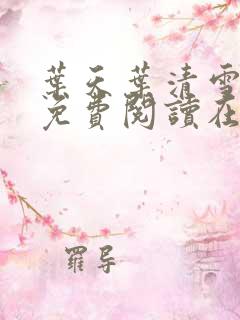 葉天葉清雪
免費閱讀在
羅导